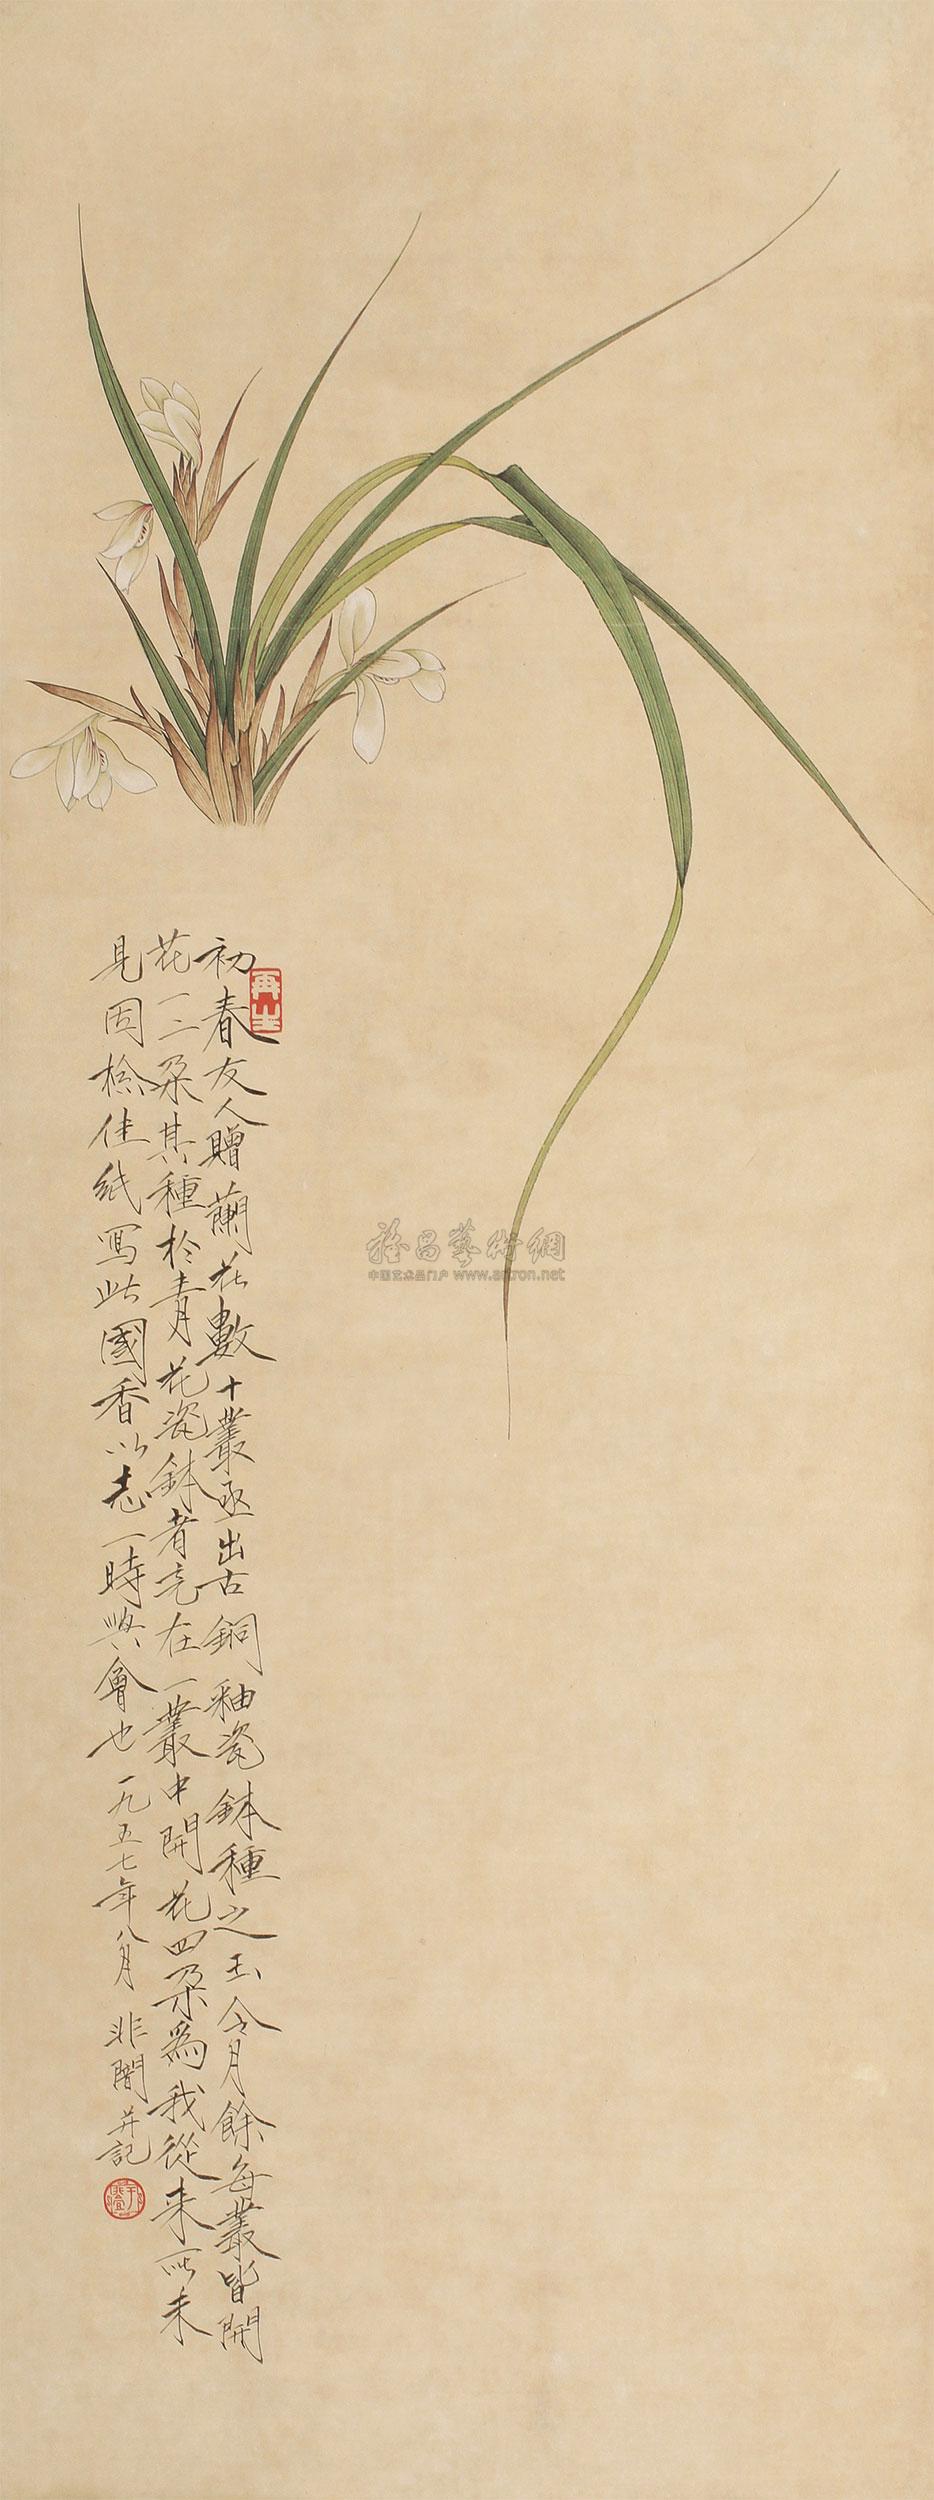 初春友人贈蘭花數十叢亟出古銅釉瓷鉢種之至今月餘每叢皆開
花一二朵其種於青花瓷鉢者竟在一叢中開花四朵為我從来所未
見因檢佳紙寫此國香以志一時興會也一九五七年八月非闇并記
再生
雅昌藝術網
中国艺术品门户 www.artron.net